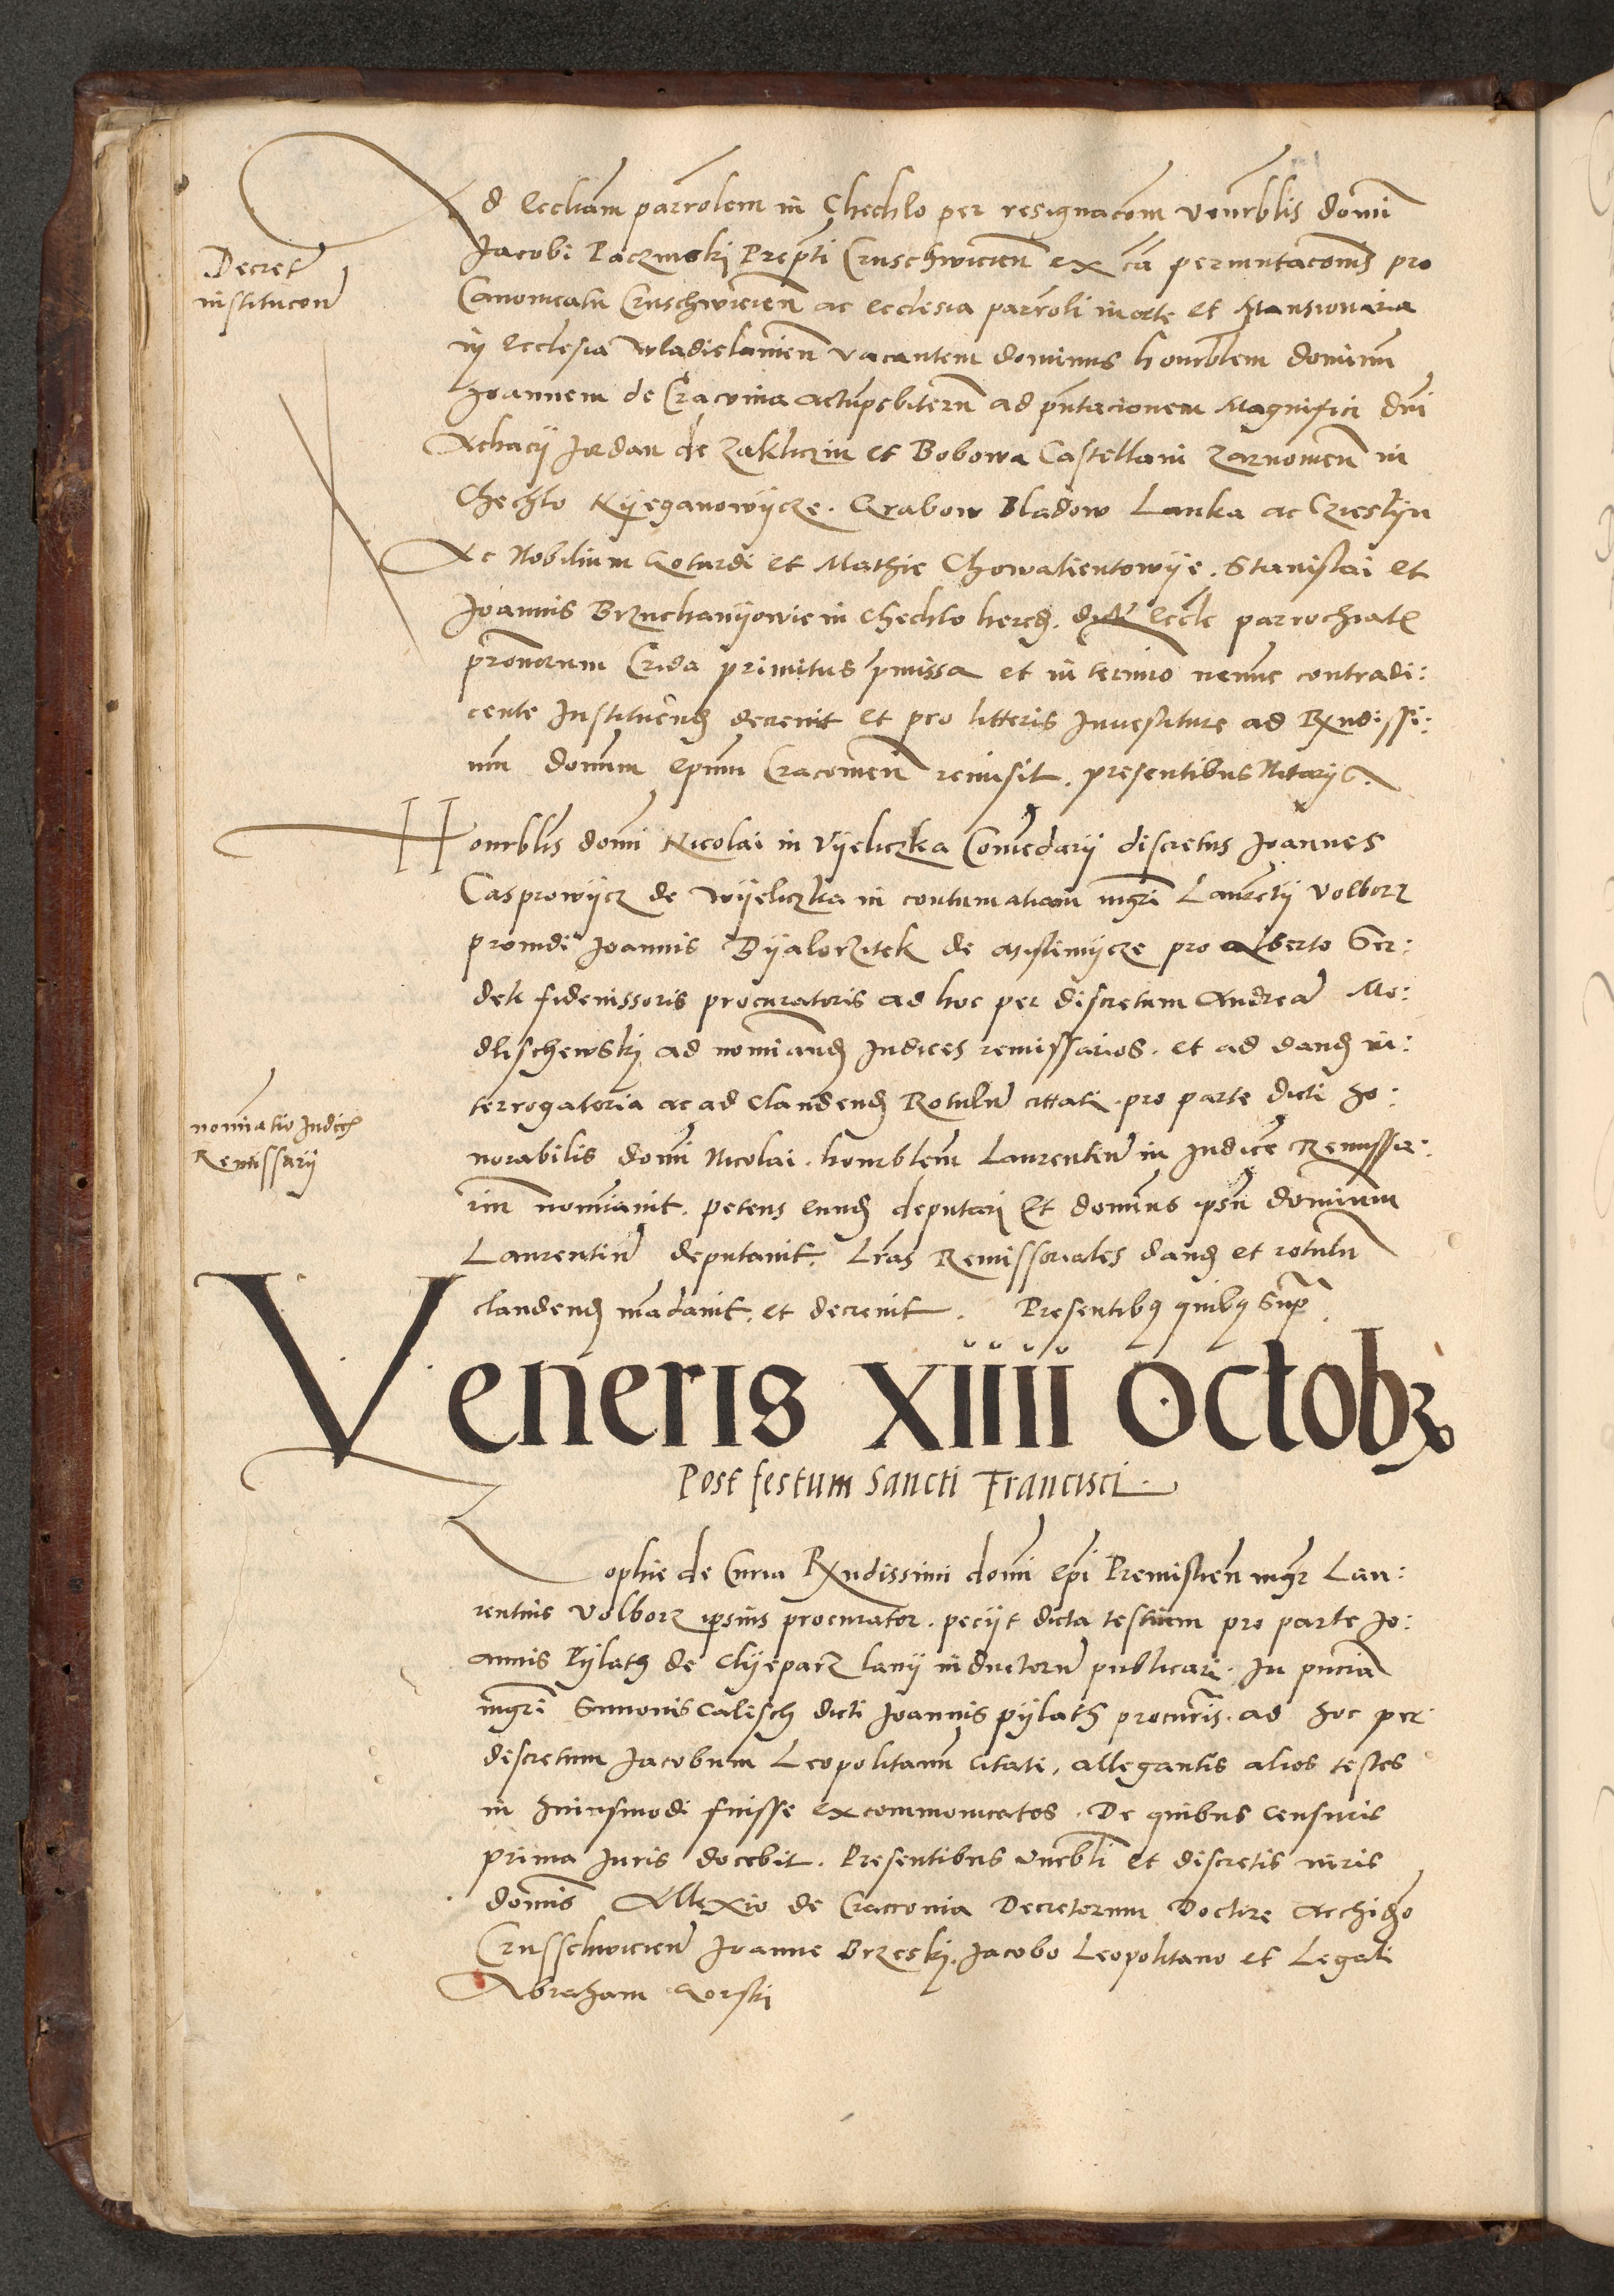 Ad eccliam parrolem in Chechlo per resignacom venerblis domi
Decret
institucon
Jacobi Paczinski Prepti Cruschwicien ex ca permutacomis pro
Canonicatu Cruschwicien ac ecclesia parroli in et Mansionaria
in ecclesia Wladislauien vacantem dominus honorblem dominum
Joannem de Cracouia ad pntacionem Magnifici dni
Achacij Jordan de Zakliczin et Bobowa Castellani Zarnouien in
Chechlo Kijeganowijcze. Grabow Bladow Lanka ac Czieslijn
Ac Nobilium Goturdi et Mathie Chowalientowije. Stanislai et
Joannis Brzuchanijowie in Chechlo hered. eccle parrochial
pronorum Crida primitus pmissa et in termino nemine contradi:
cente Instituend decreuit et pro litteris Inuestiture ad Rxndissi:
mum domum epum Cracouien remisit. presentibus Notarijs.
Honorblis domi Nicolai in Vijeliczka Comedarij discretus Joannes
Casprowijcz de Wijeliczka in contumatiam mgri Lauretij Volborz
prouidi Joannis Bijalorzitek de pro alberto Ser:
dek fideiussoris procuratoris ad hoc per discretum Andrea Mo:
dlischewski ad nominand Judices remissarios. et ad dand in:
terrogatoria ac ad claudend Rotulum cittati. pro parte dicti Ho:
nominatio Judicis
Remissarij
norabilis domi Nicolai. honorblem Laurentium in Judice Remissa:
rium nominauit. petens eund deputari Et dominus ipsum dominum
Laurentium deputauit. Lras Remissoriales dand et rotulum
claudend madauit. et decreuit. Presentibus quibus supra.
Veneris XIIII Octobr
Post festum Sancti Francisci.
Zophie de Curia Rxndissimi domi epi Premislien mgr Lau:
rentius Volborz ipsius procurator. pecijt dicta testium pro parte Jo:
annis Pijlath de Clijeparz lanij inductorum publicari. In pnciam
mgri Simonis Calisch dicti Joannis Pijlath procuris. ad hoc per
discretum Jacobum Leopolitanum citati, allegantis alios testes
in huiusmodi fuisse excommonicatos. De quibus censuris
prima Juris docebit. Presentibus vnerbli et discretis viris
domis Allexio de Cracouia Decretorum Doctore Archidno
Crusschwicien Joanne Brzeski. Jacobo Leopolitano et Legali
Abraham Gorski